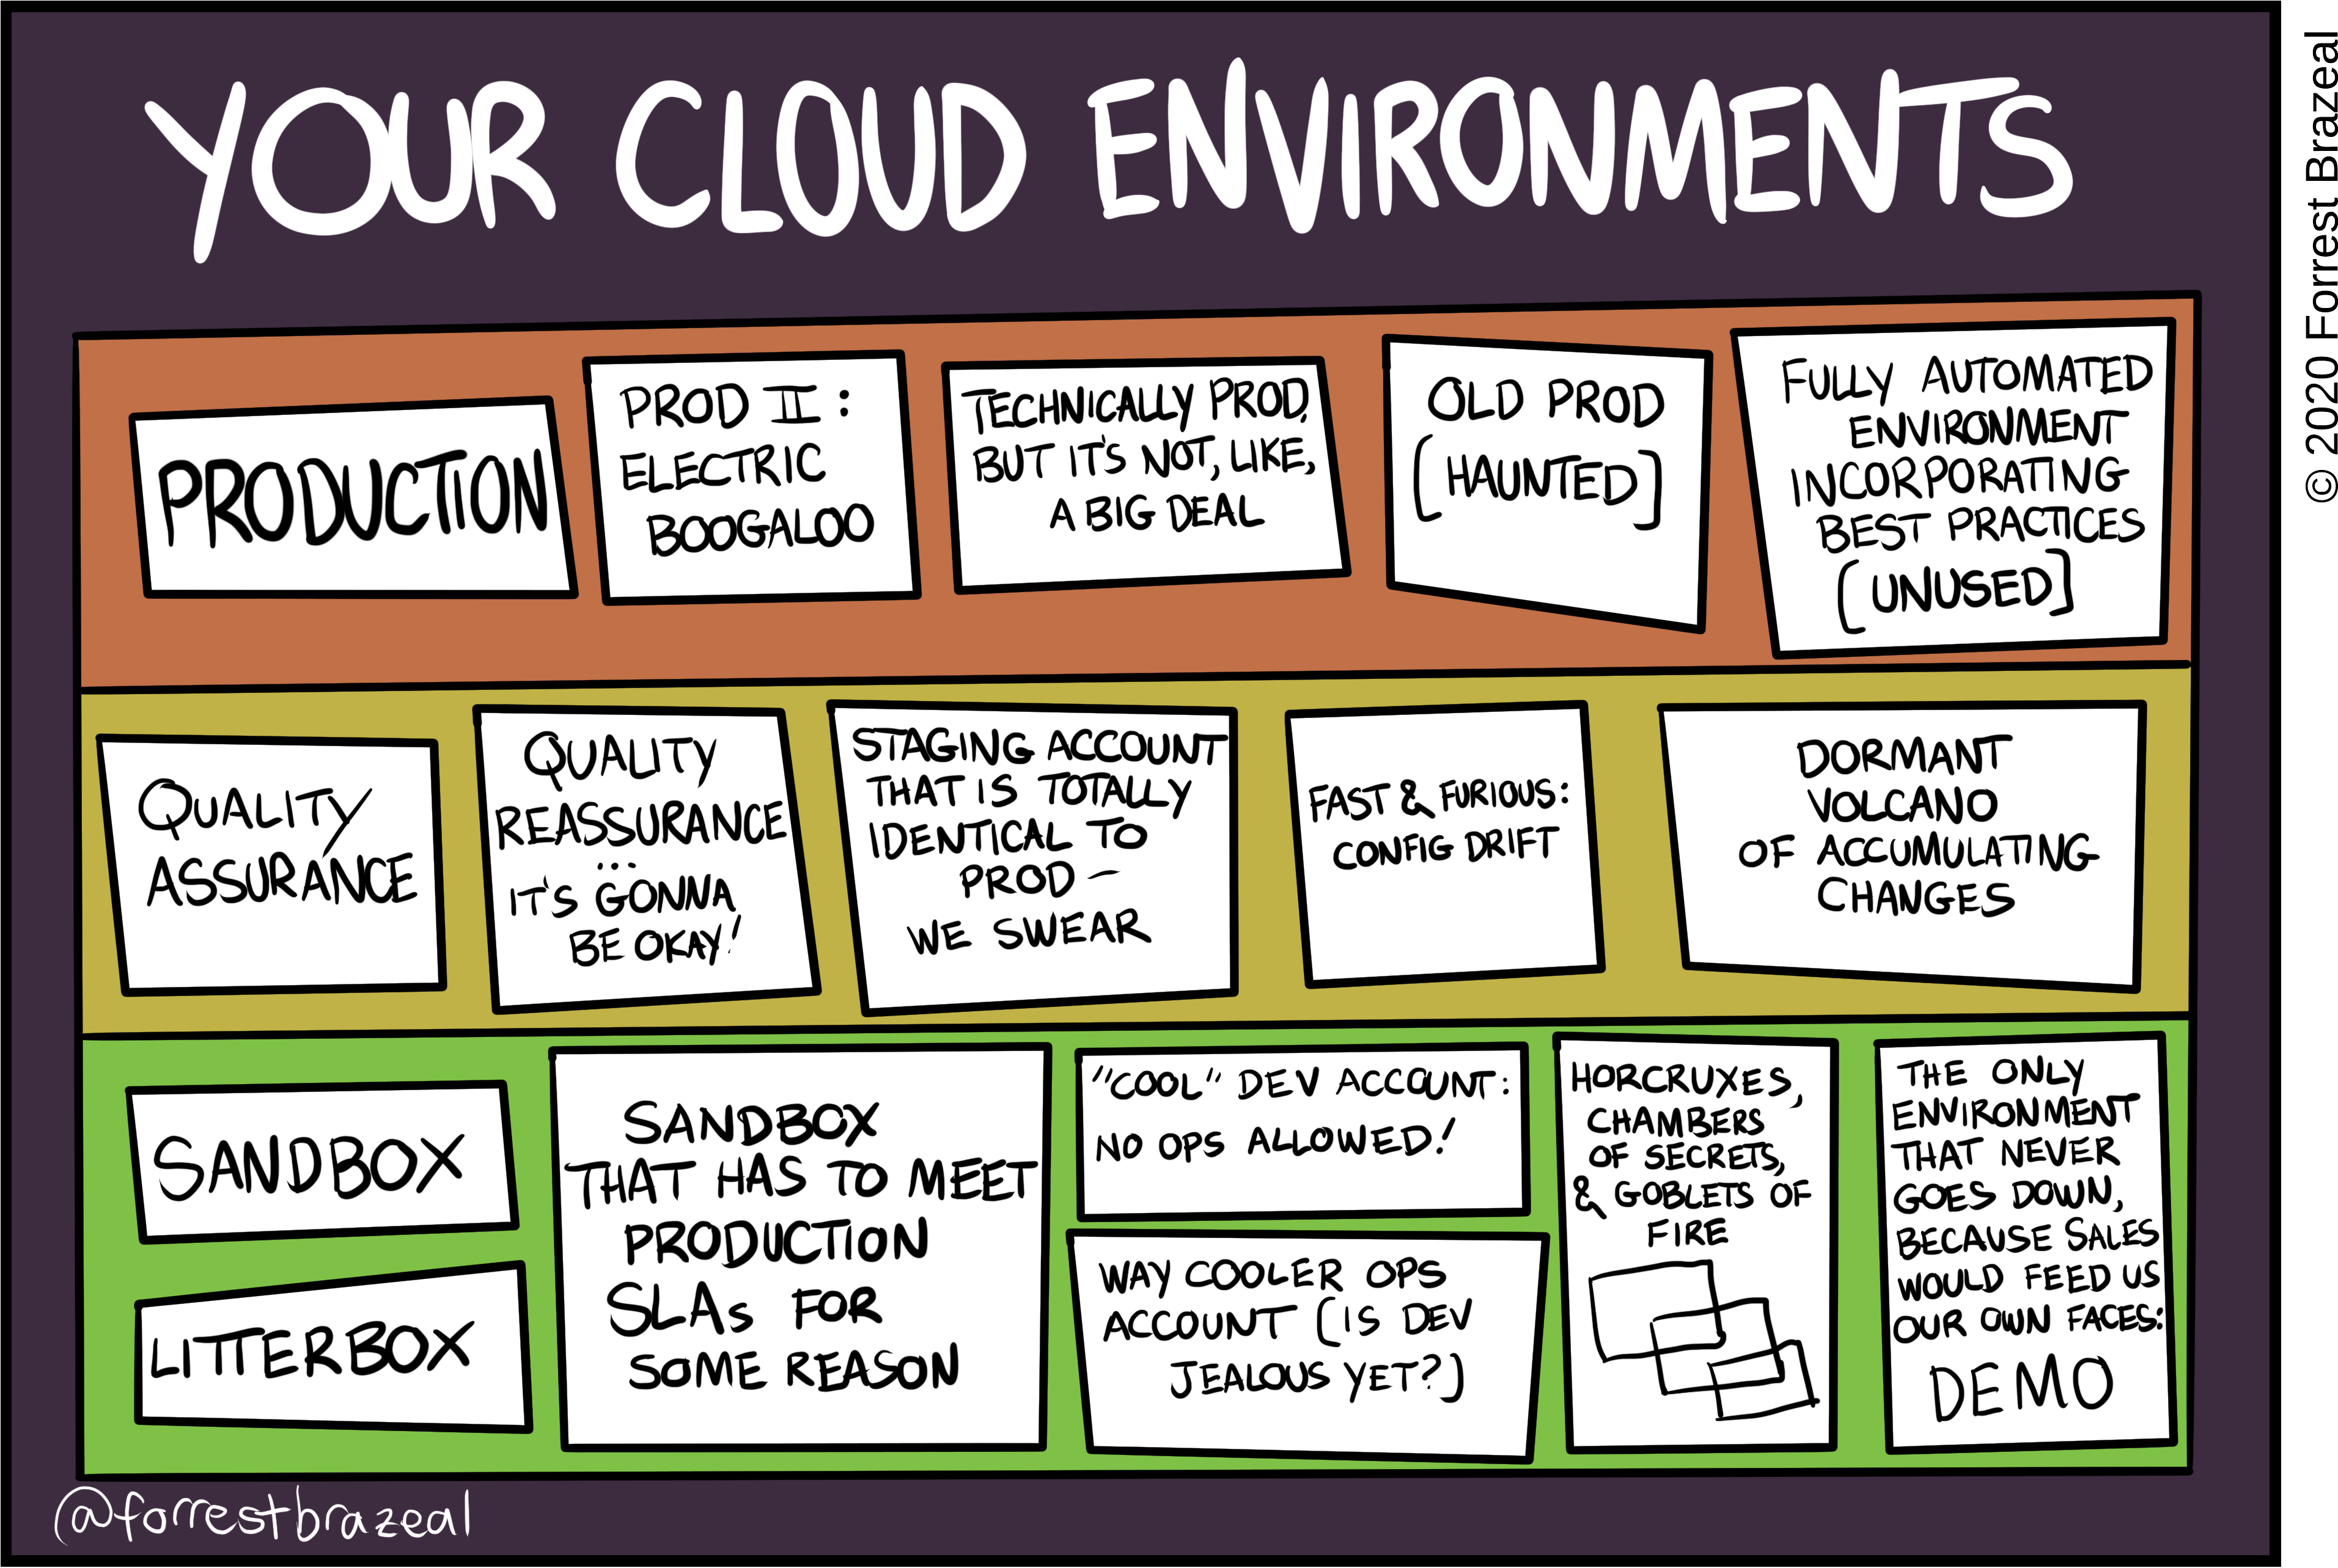 YOUR CLOUD ENVIRONMENTS
© 2020 Forrest Brazeal
PRODUCTION
PROD II:
ELECTRIC
BOOGALOO
TECHNICALLY PROD,
BUT IT'S NOT, LIKE,
A BIG DEAL
OLD PROD
[HAUNTED]
FULLY AUTOMATED
ENVIRONMENT
INCORPORATING
BEST PRACTICES
[UNUSED]
QUALITY
ASSURANCE
QUALITY
REASSURANCE
...
IT'S GONNA
BE OKAY!
STAGING ACCOUNT
THAT IS TOTALLY
IDENTICAL TO
PROD –
WE SWEAR
FAST & FURIOUS:
CONFIG DRIFT
DORMANT
VOLCANO
OF ACCUMULATING
CHANGES
SANDBOX
LITTERBOX
SANDBOX
THAT HAS TO MEET
PRODUCTION
SLAs FOR
SOME REASON
"COOL" DEV ACCOUNT:
NO OPS ALLOWED!
WAY COOLER OPS
ACCOUNT [IS DEV
JEALOUS YET?]
HORCRUXES,
CHAMBERS
OF SECRETS,
& GOBLETS OF
FIRE
THE ONLY
ENVIRONMENT
THAT NEVER
GOES DOWN,
BECAUSE SALES
WOULD FEED US
OUR OWN FACES:
DEMO
@forrestbrazeal